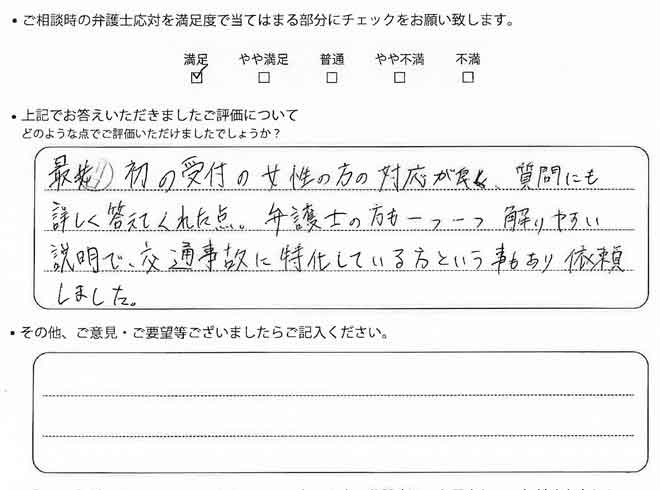 • ご相談時の弁護士応対を満足度で当てはまる部分にチェックをお願い致します。
満足 やや満足 普通 やや不満 不満
☑ □ □ □ □
• 上記でお答えいただきましたご評価について
どのような点でご評価いただけましたでしょうか？
最初の受付の女性の方の対応が良く、質問にも
詳しく答えてくれた点。弁護士の方も一つ一つ解りやすい
説明で、交通事故に特化している方という事もあり依頼
しました。
• その他、ご意見・ご要望等ございましたらご記入ください。